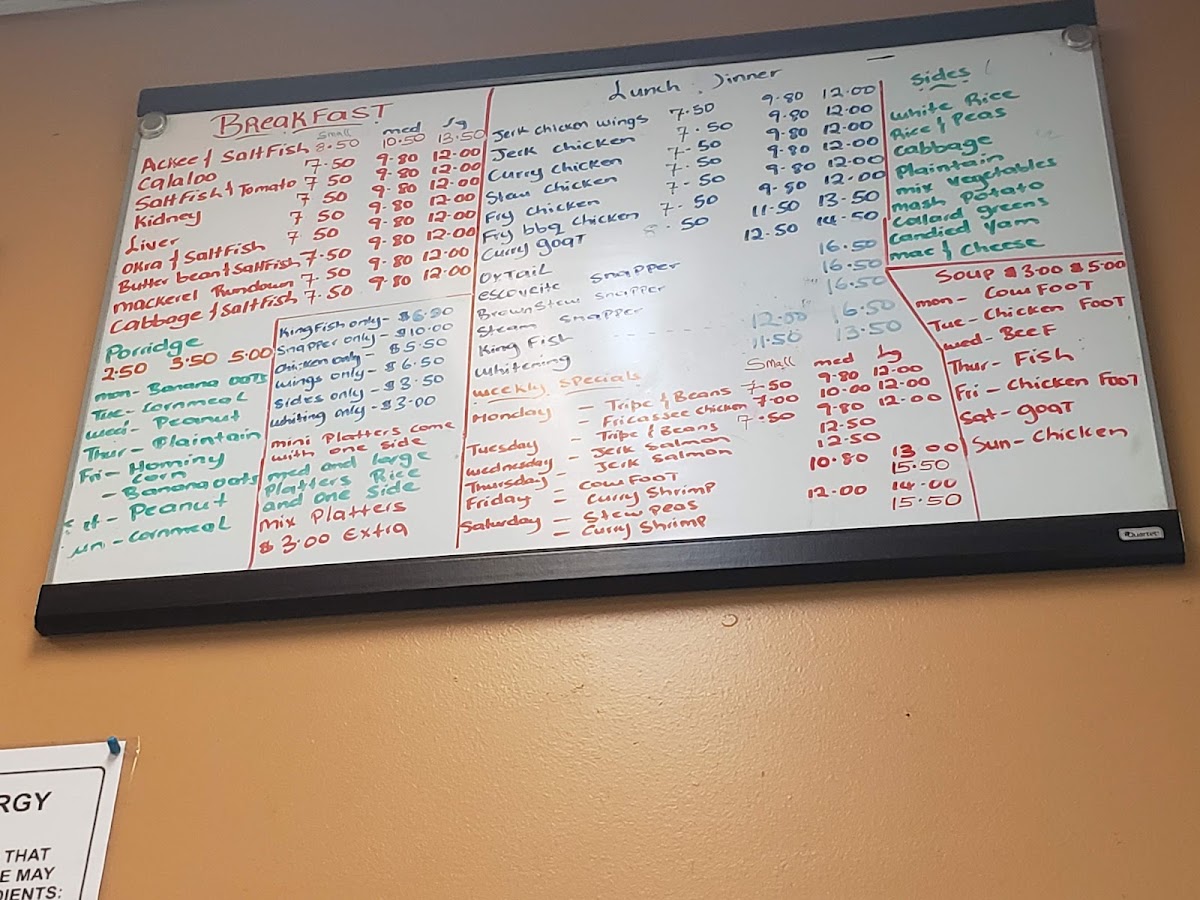 BREAKFAST
Small med Lg
Ackee & SaltFish 8.50 10.50 13.50
Calaloo 7.50 9.80 12.00
SaltFish & Tomato 7.50 9.80 12.00
Kidney 7.50 9.80 12.00
Liver 7.50 9.80 12.00
Okra & SaltFish 7.50 9.80 12.00
Butter bean & SaltFish 7.50 9.80 12.00
mackerel Rundown 7.50 9.80 12.00
Cabbage & SaltFish 7.50 9.80 12.00
Porridge
2.50 3.50 5.00
mon- Banana oats
Tue- Cornmeal
wed- Peanut
Thur- Plaintain
Fri- Hominy
corn
- Banana oats
- Peanut
- Cornmeal
King Fish only- $6.80
Snapper only- $10.00
Chicken only- $5.50
wings only- $6.50
sides only- $3.50
whiting only- $3.00
mini Platters come
with one side
med and large
Platters Rice
and one side
Mix Platters
$3.00 Extra
Lunch. Dinner
Jerk chicken wings 7.50 9.80 12.00
Jerk chicken 7.50 9.80 12.00
Curry chicken 7.50 9.80 12.00
Stew chicken 7.50 9.80 12.00
Fry chicken 7.50 9.80 12.00
Fry bbq chicken 7.50 9.80 12.00
Curry goat 8.50 11.50 13.50
OxTail 12.50 14.50
escoveite snapper 16.50
Brown Stew snapper 16.50
Steam snapper 16.50
King Fish 12.00 16.50
Whitening 11.50 13.50
weekly specials Small med Lg
Monday - Tripe & Beans 7.50 9.80 12.00
- Fricassee Chicken 7.00 10.00 12.00
Tuesday - Tripe & Beans 7.50 9.80 12.00
wednesday - Jerk Salmon 12.50
Thursday - Jerk Salmon 12.50
Friday - Cow Foot 10.80 13.00
- Curry Shrimp 15.50
Saturday - Stew Peas 12.00 14.00
- Curry Shrimp 15.50
Sides
White Rice
Rice & Peas
Cabbage
Plaintain
mix vegetables
mash Potato
Collard greens
Candied yam
mac & Cheese
Soup $3.00 $5.00
mon- Cow Foot
Tue- Chicken Foot
wed- Beef
Thur- Fish
Fri- Chicken Foot
Sat- goat
Sun- Chicken
Quartet
RGY
THAT
E MAY
DIENTS: